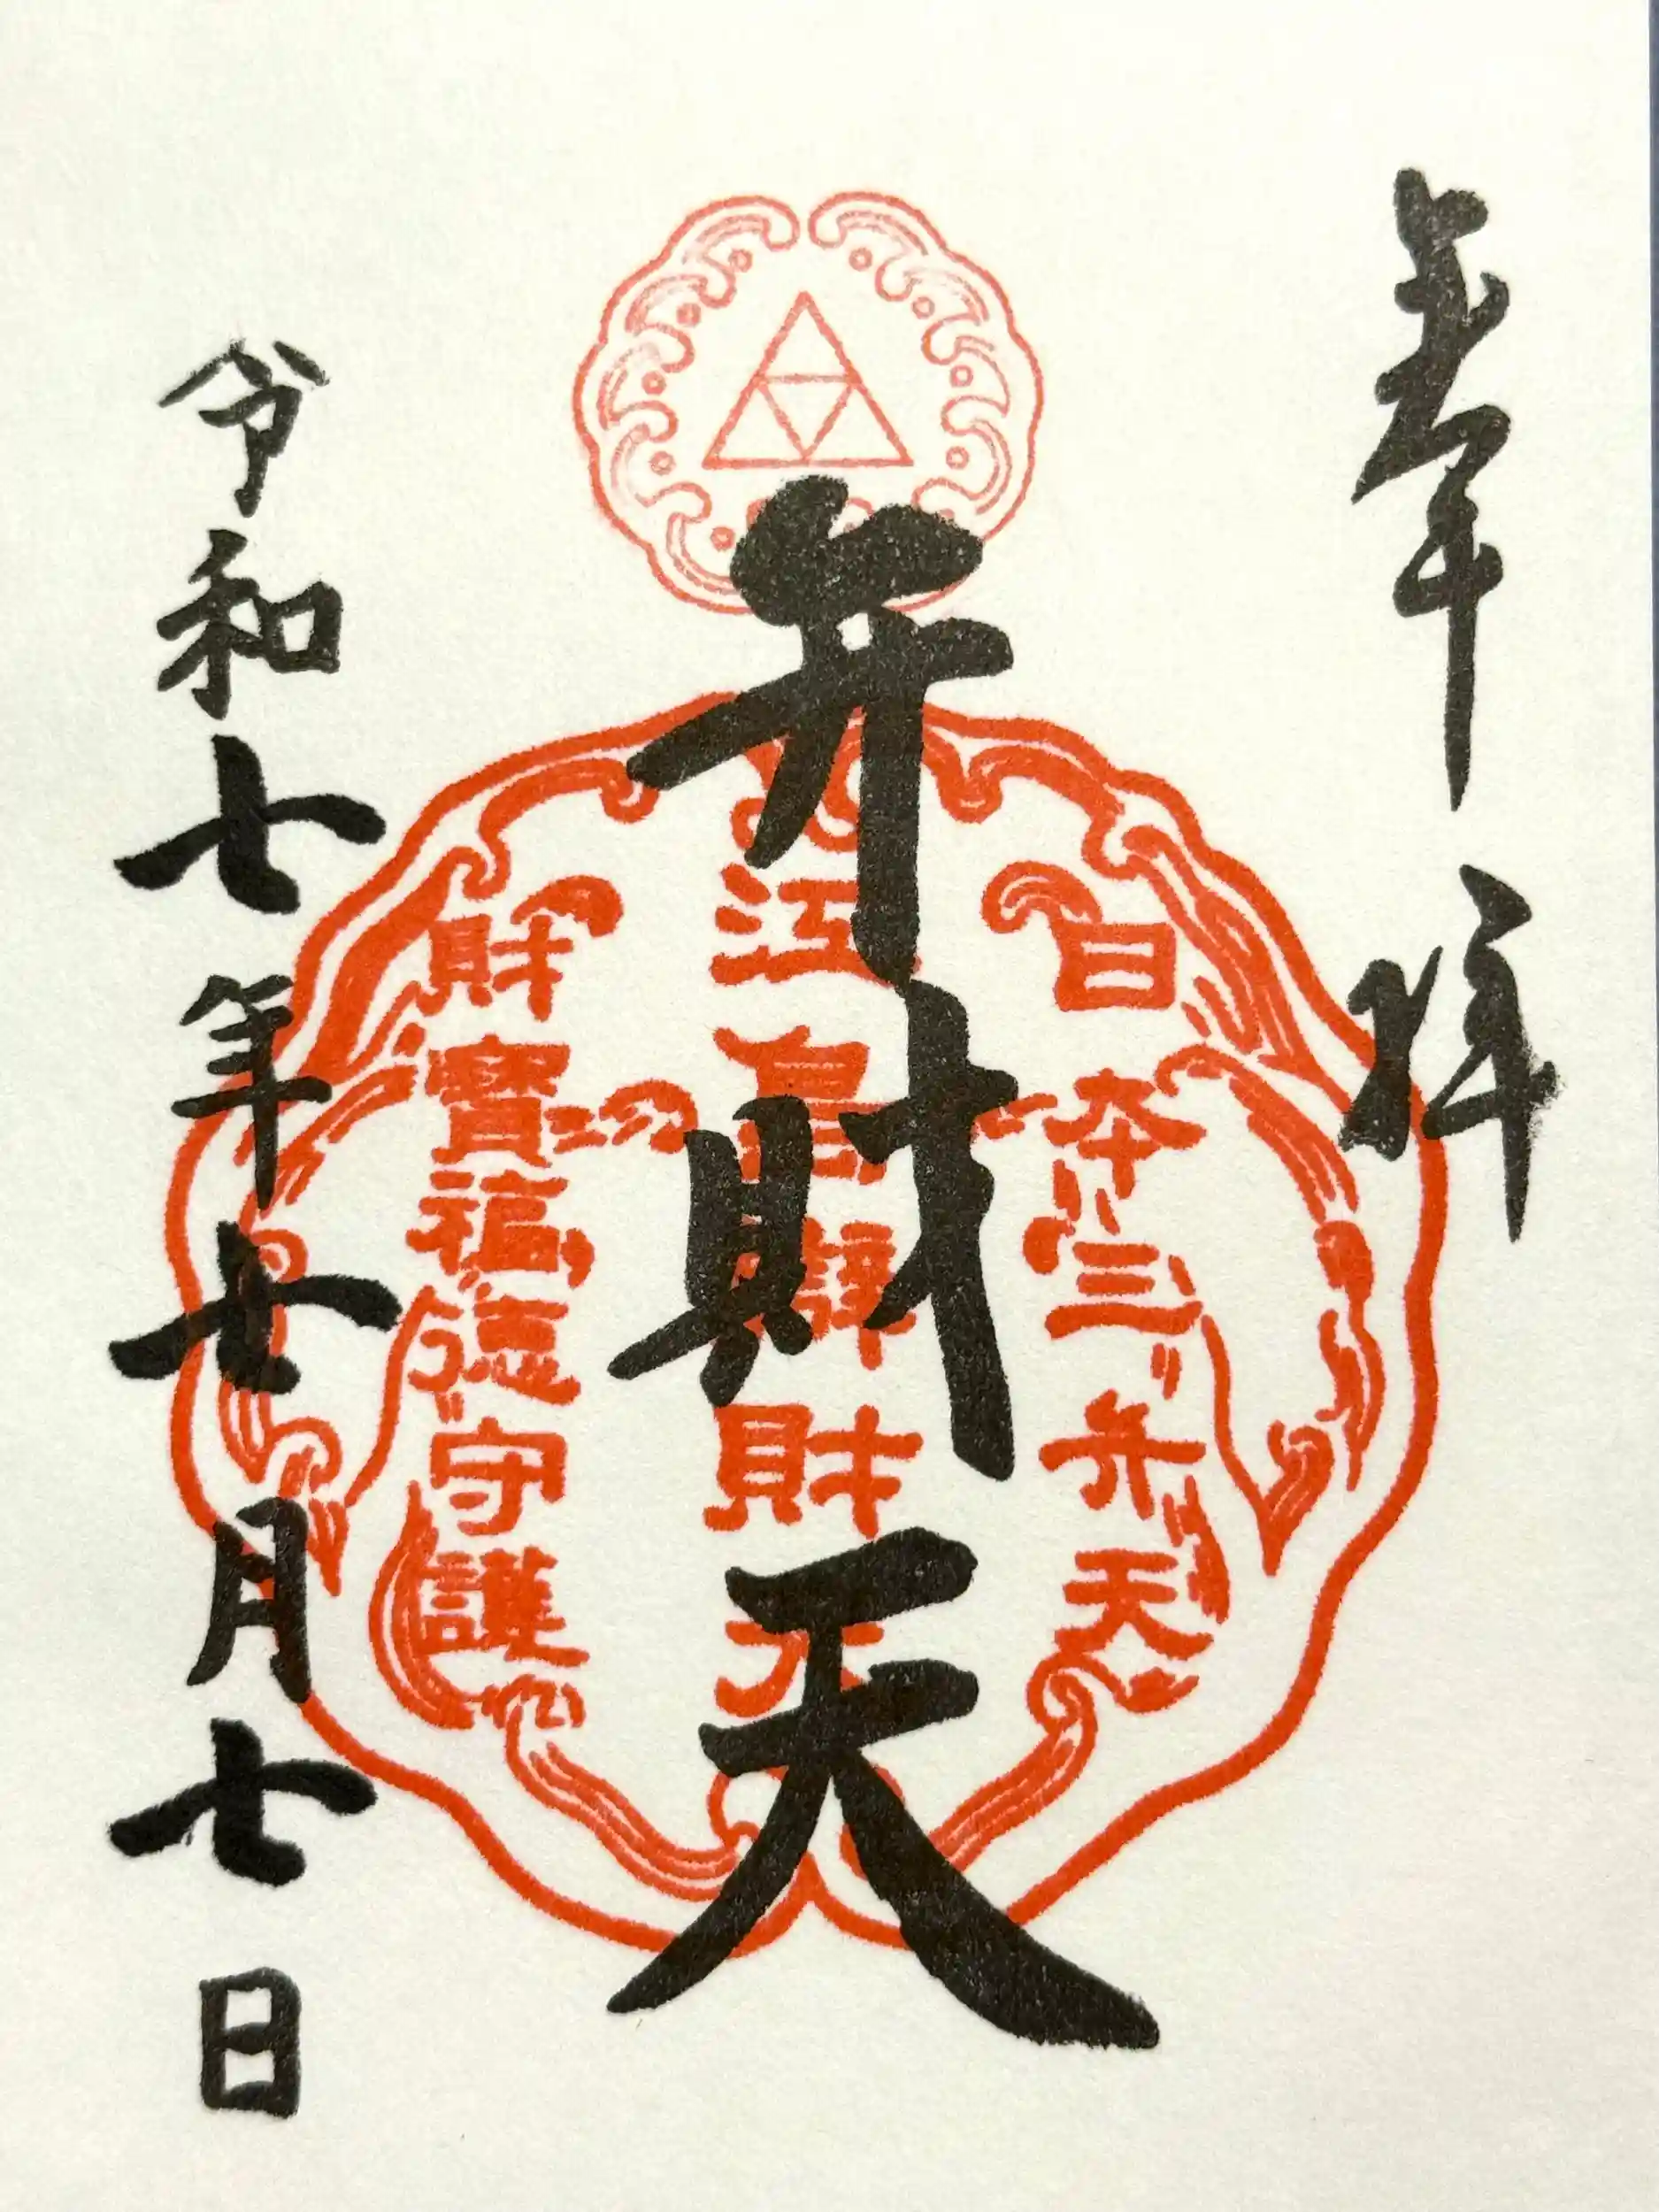 奉拝
日本三弁天
江島辨財天
財寶福徳守護
弁財天
令和七年七月七日